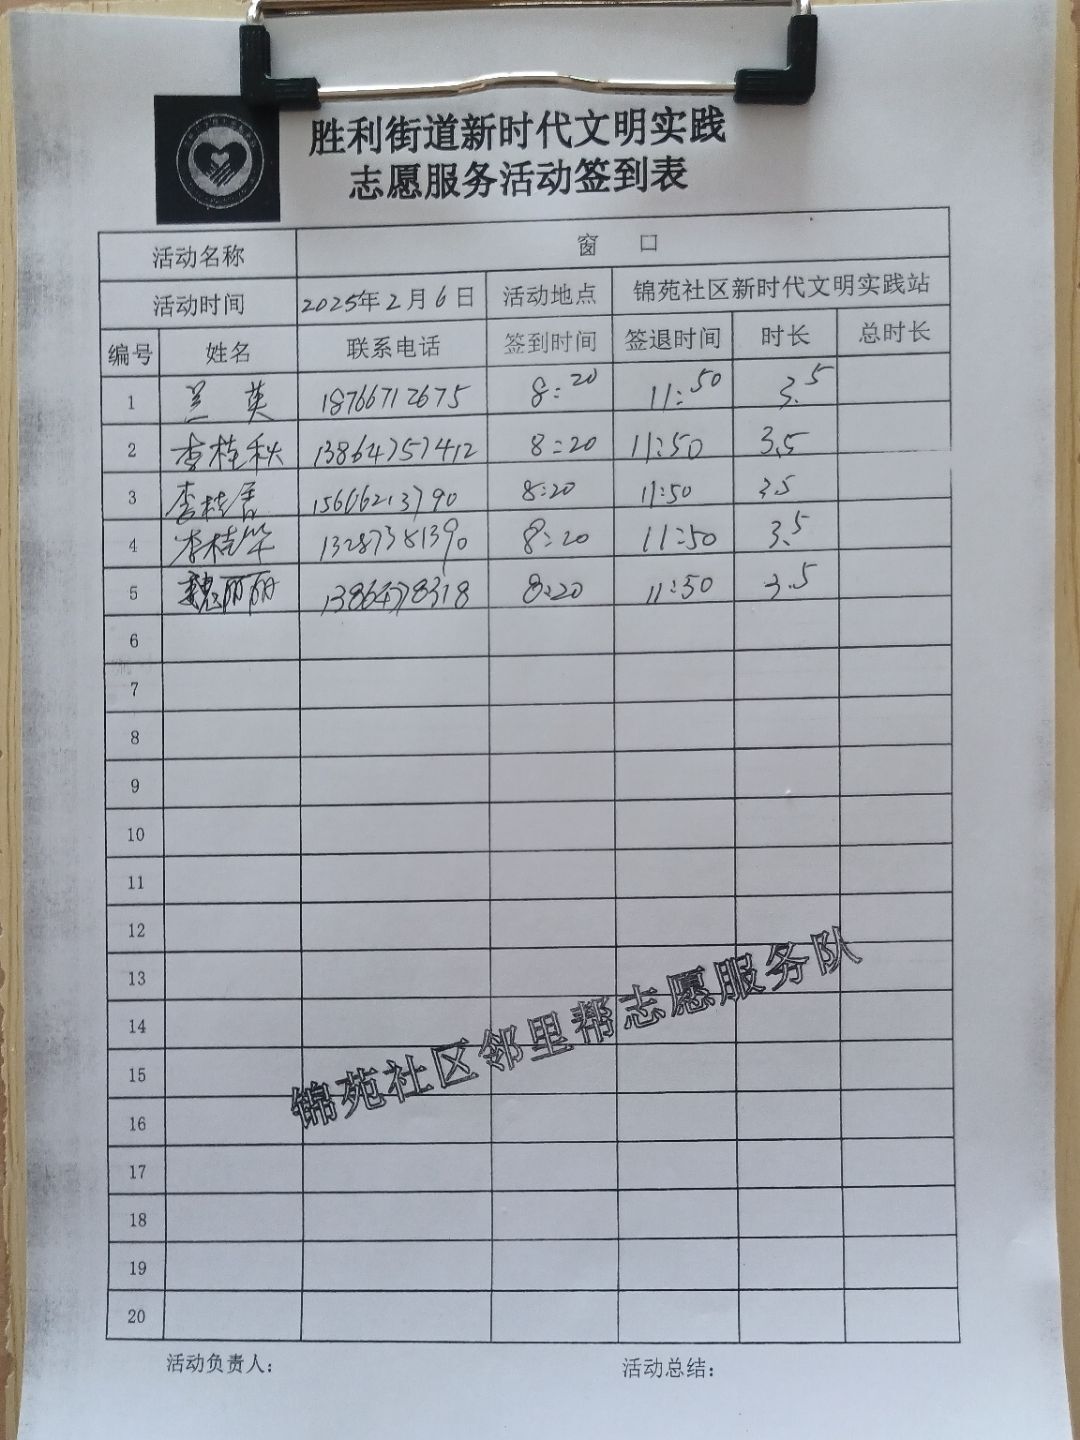 胜利街道新时代文明实践
志愿服务活动签到表
活动名称 窗 口
活动时间 2025年2月6日 活动地点 锦苑社区新时代文明实践站
编号 姓名 联系电话 签到时间 签退时间 时长 总时长
1 兰英 18766712675 8:20 11:50 3.5
2 李桂秋 13864757412 8:20 11:50 3.5
3 李桂 15666213790 8:20 11:50 3.5
4 李桂华 13287381390 8:20 11:50 3.5
5 魏丽丽 8:20 11:50 3.5
6
7
8
9
10
11
12
13
14
15
16
17
18
19
20
锦苑社区邻里帮志愿服务队
活动负责人： 活动总结：